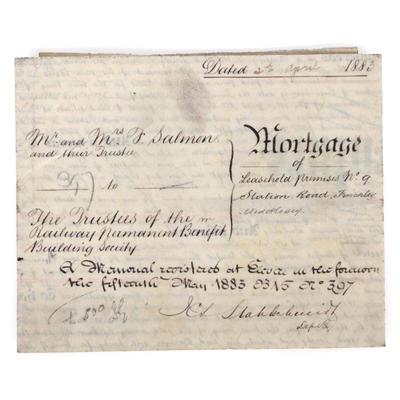 Dated 2th April 1883
Mr. and Mrs F. Salmon
and their Trustee
to
The Trustees of the
Railway Permanent Benefit
Building Society
Mortgage
of
Leasehold premises No 9
Station Road, Finchley
Middlesex
A Memorial registered at in the forenoon
the fifteenth May 1883 B 15 No 397